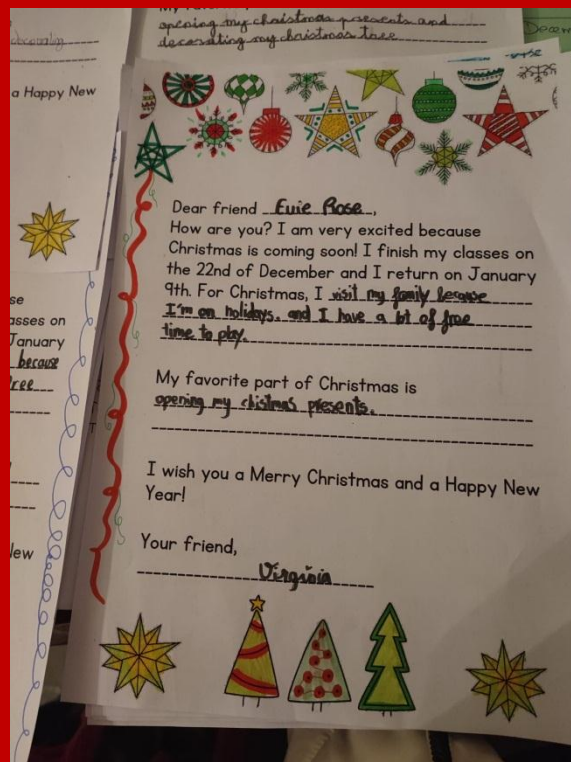 opening my christmas presents and
decorating my christmas tree
a Happy New
Dear friend Evie Rose,
How are you? I am very excited because
Christmas is coming soon! I finish my classes on
the 22nd of December and I return on January
9th. For Christmas, I visit my family because
I'm on holidays. and I have a lot of free
time to play.
My favorite part of Christmas is
opening my chistmas presents.
I wish you a Merry Christmas and a Happy New
Year!
Your friend,
Virginia
se
asses on
January
because
free
lew